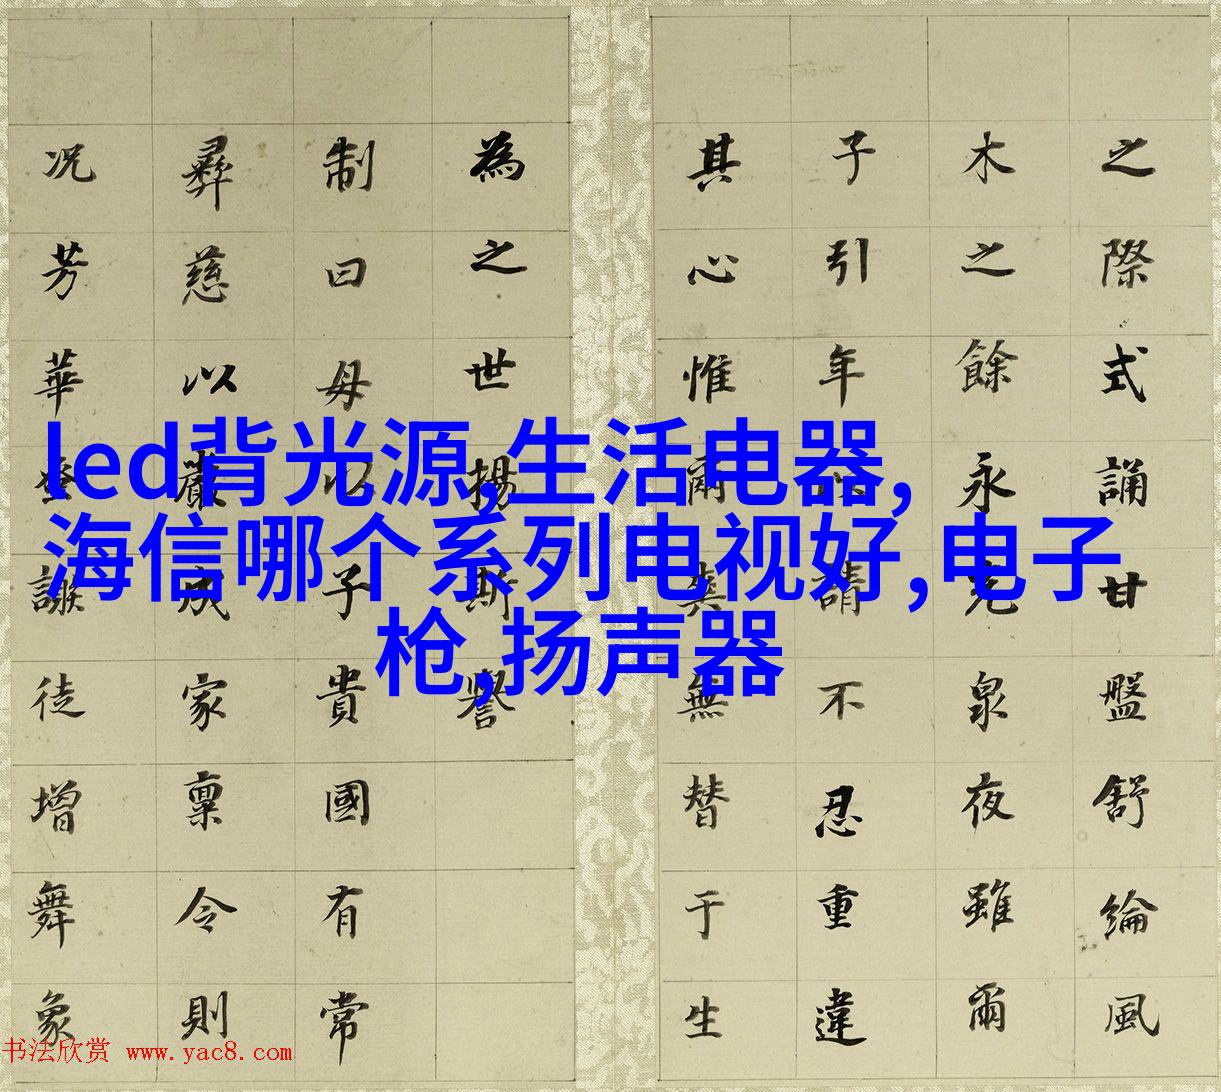 led背光源,生活电器,
海信哪个系列电视好,电子
枪,扬声器
之際式誦甘盤舒綸風
木之餘永克泉夜雖爾
子引年請不忍重違
其心惟爾無替于生
為之世揚斯譽
制曰母以子貴國有常
彝慈以嚴成家稟令則
況芳華徒增舞象
书法欣赏 www.yac8.com